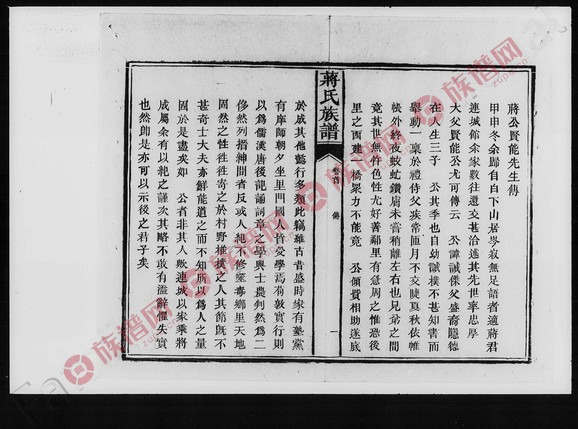 蔣公賢能先生傳
甲申冬余歸自白下山居岑寂無足語者適蔣君
連城館余家數往還交甚洽述其先世孝忠學
大父賢能公尤可傳云 公諱誠侯父盛裔隱德
在人生三子 公其季也自幼誠樸不甚知書而
舉動一稟於禮侍父疾常匝月不交睫夏秋依帷
帳外終夜蚊虻鑽膚未嘗稍離左右也兄弟之間
竟其世無忤色性尤好善鄰里有急周之惟恐後
里之西建一橋眾力不能竟 公傾貲相助遂底
蔣氏族譜
卷首 傳
一
於成其他懿行多類此竊維古昔盛時家有塾黨
有庠師朝夕坐里門國人皆受學焉有敦實行則
以為儒漢唐後龍誦詞章之學興士農判然為二
侈然列搢紳間者反或人倫不修鑿毒鄉里天地
固然之性往往寄之於村野椎樸之人其篤既不
甚奇士大夫亦鮮能道之而不知所以為人之量
固於是盡矣如 公者非其人歟連城以家乘將
成屬余有以紀之謹次其略不敢有溢辭懼失實
也然即是亦可以示後之君子矣
族谱网
zupu.cn